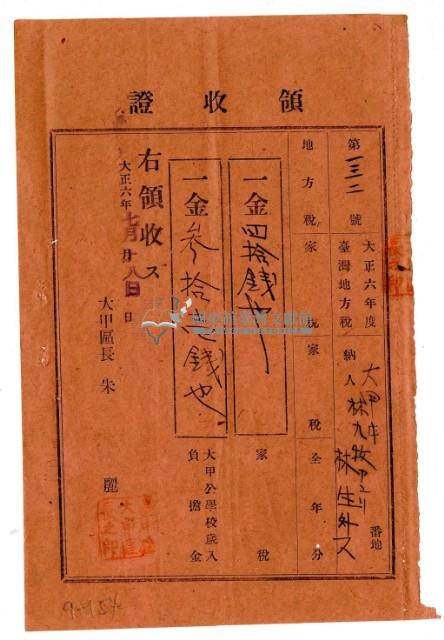 領收證
第一三二號
大正六年度
臺灣地方稅
納人
番地
林九牧
林生外又
地方稅 家稅 家稅全年分
一金四拾錢也
家稅
一金參拾 錢也
大甲公學校歲入
負擔金
右領收ス
大正六年七月廿八日 日
大甲區長 朱麗
9-154